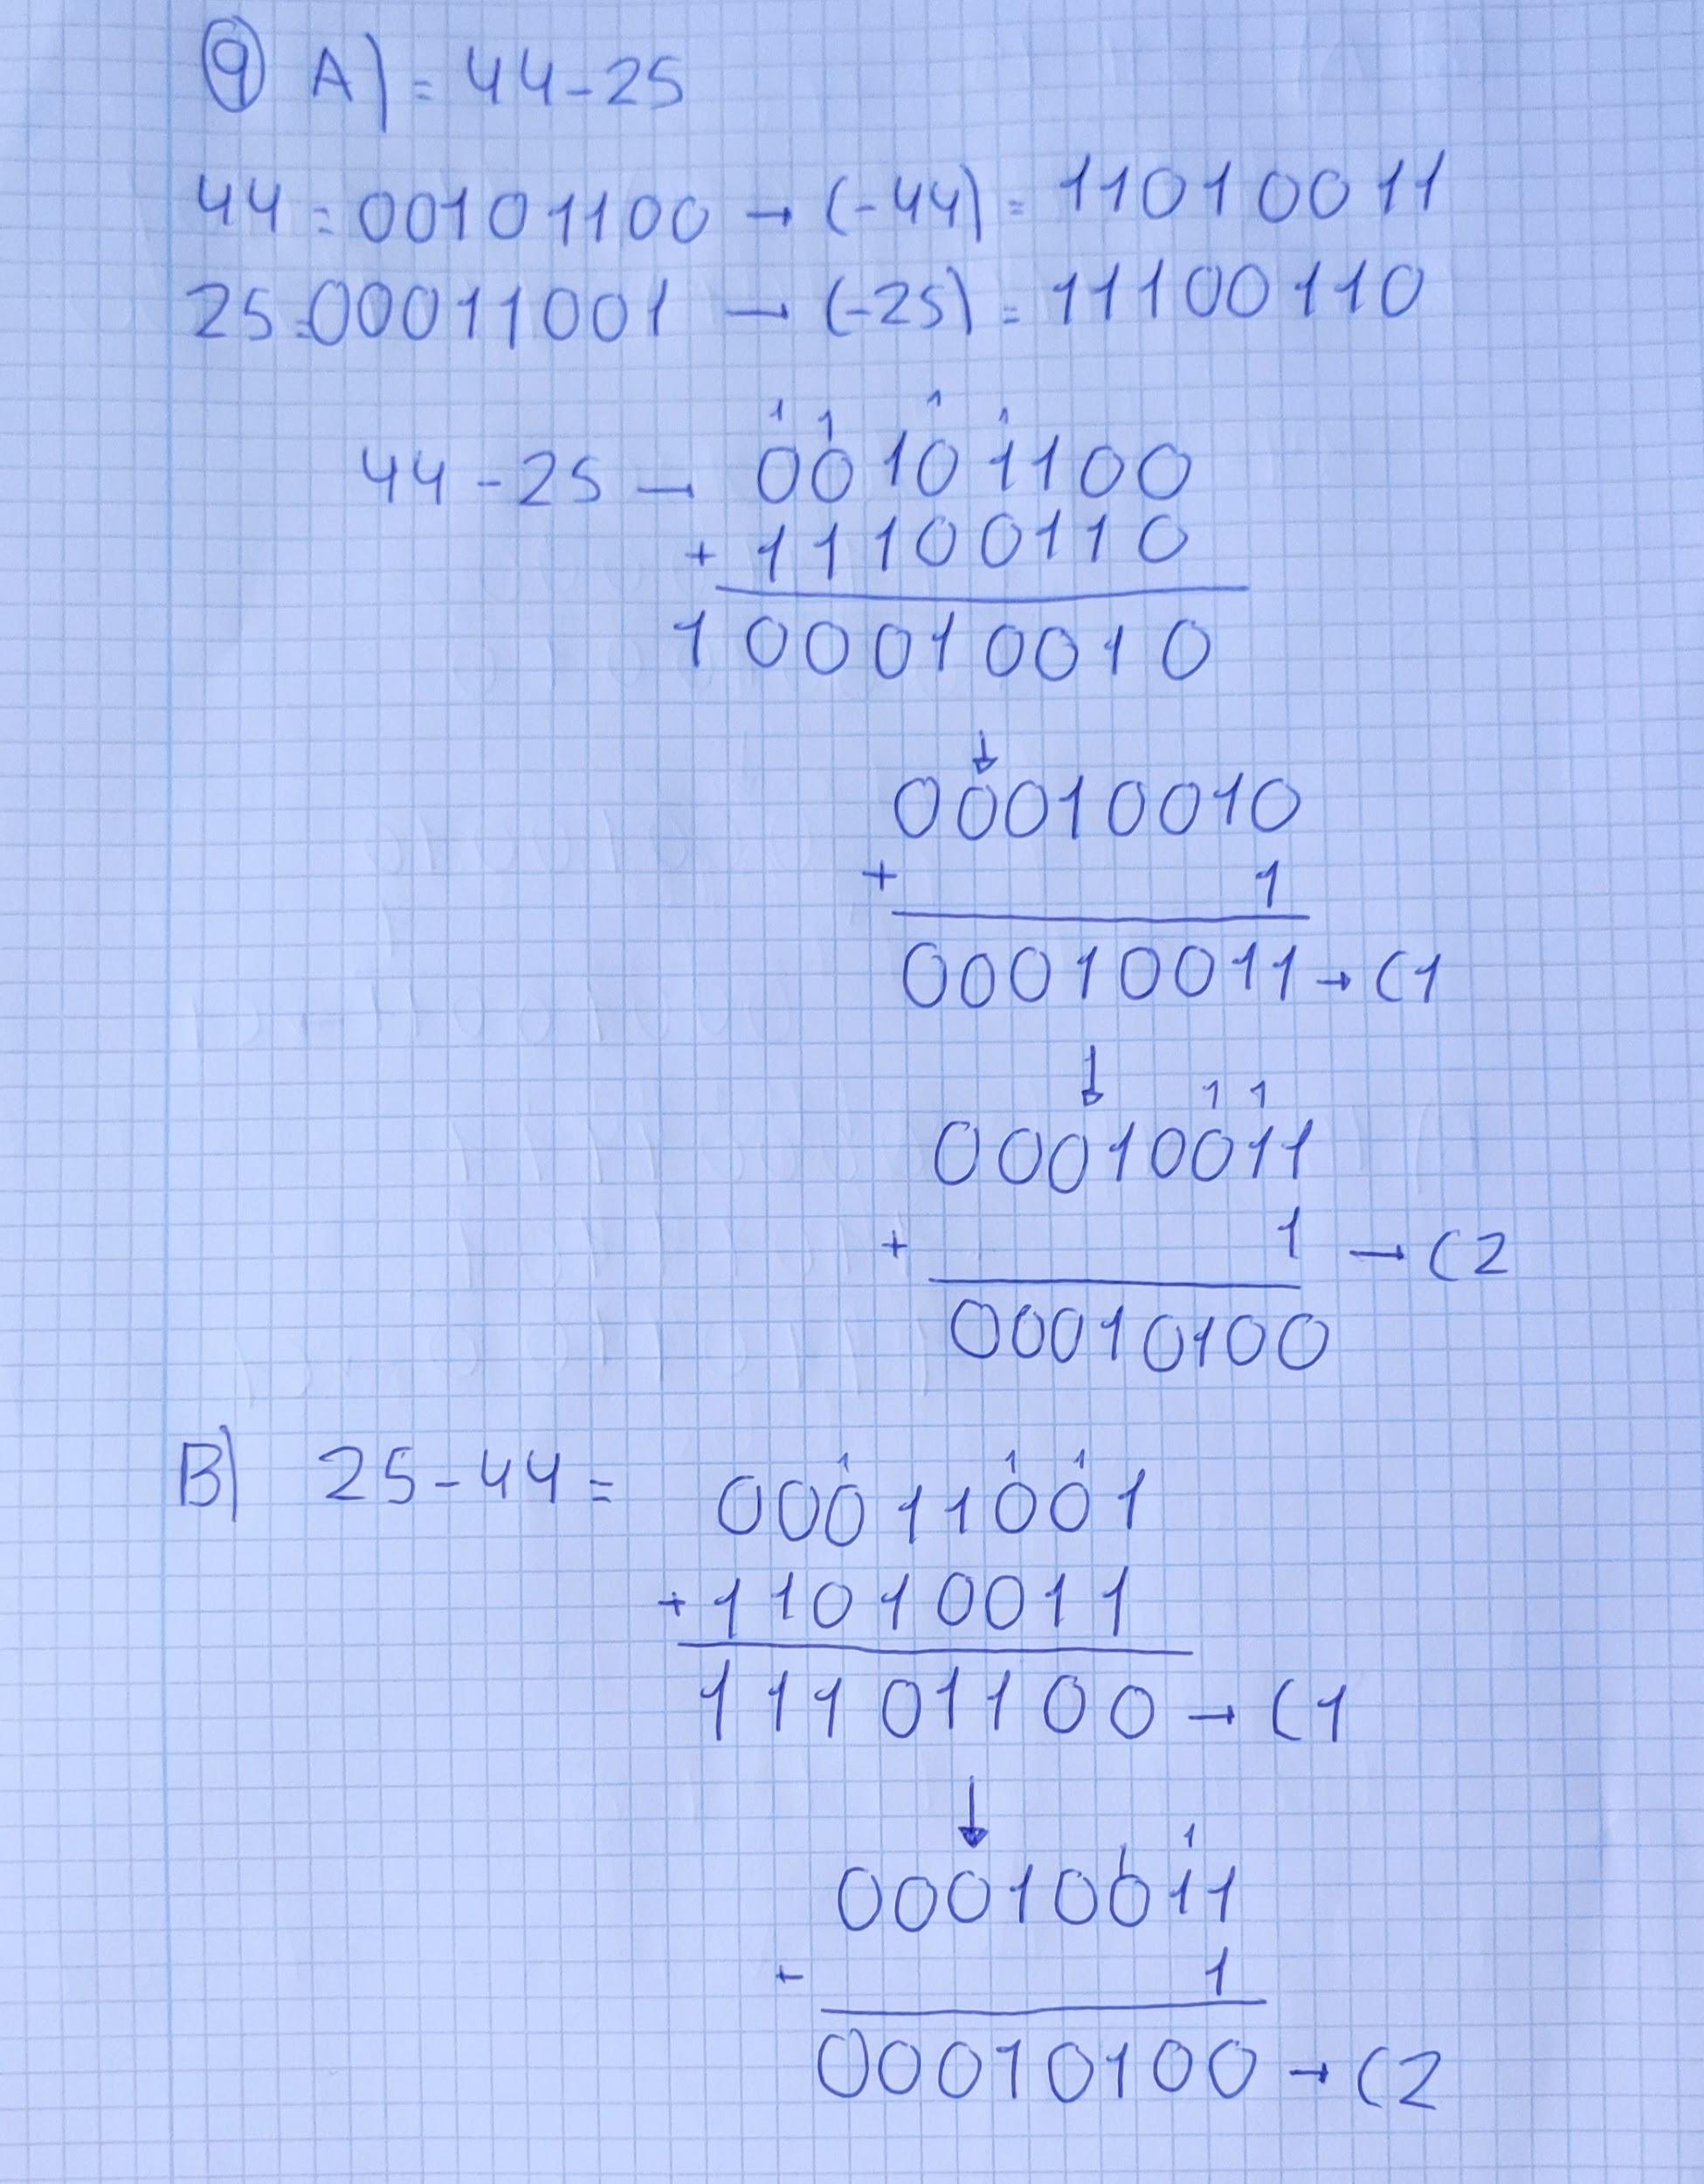 9 A) = 44-25
44 = 00101100 → (-44) = 11010011
25 = 00011001 → (-25) = 11100110
1 1 1 1
44 - 25 → 00101100
+ 11100110
100010010
↓
00010010
+ 1
00010011 → C1
↓ 1 1
00010011
+ 1 → C2
00010100
1 1 1
B) 25-44 = 00011001
+ 11010011
11101100 → C1
↓
1 1
00010011
+ 1
00010100 → C2